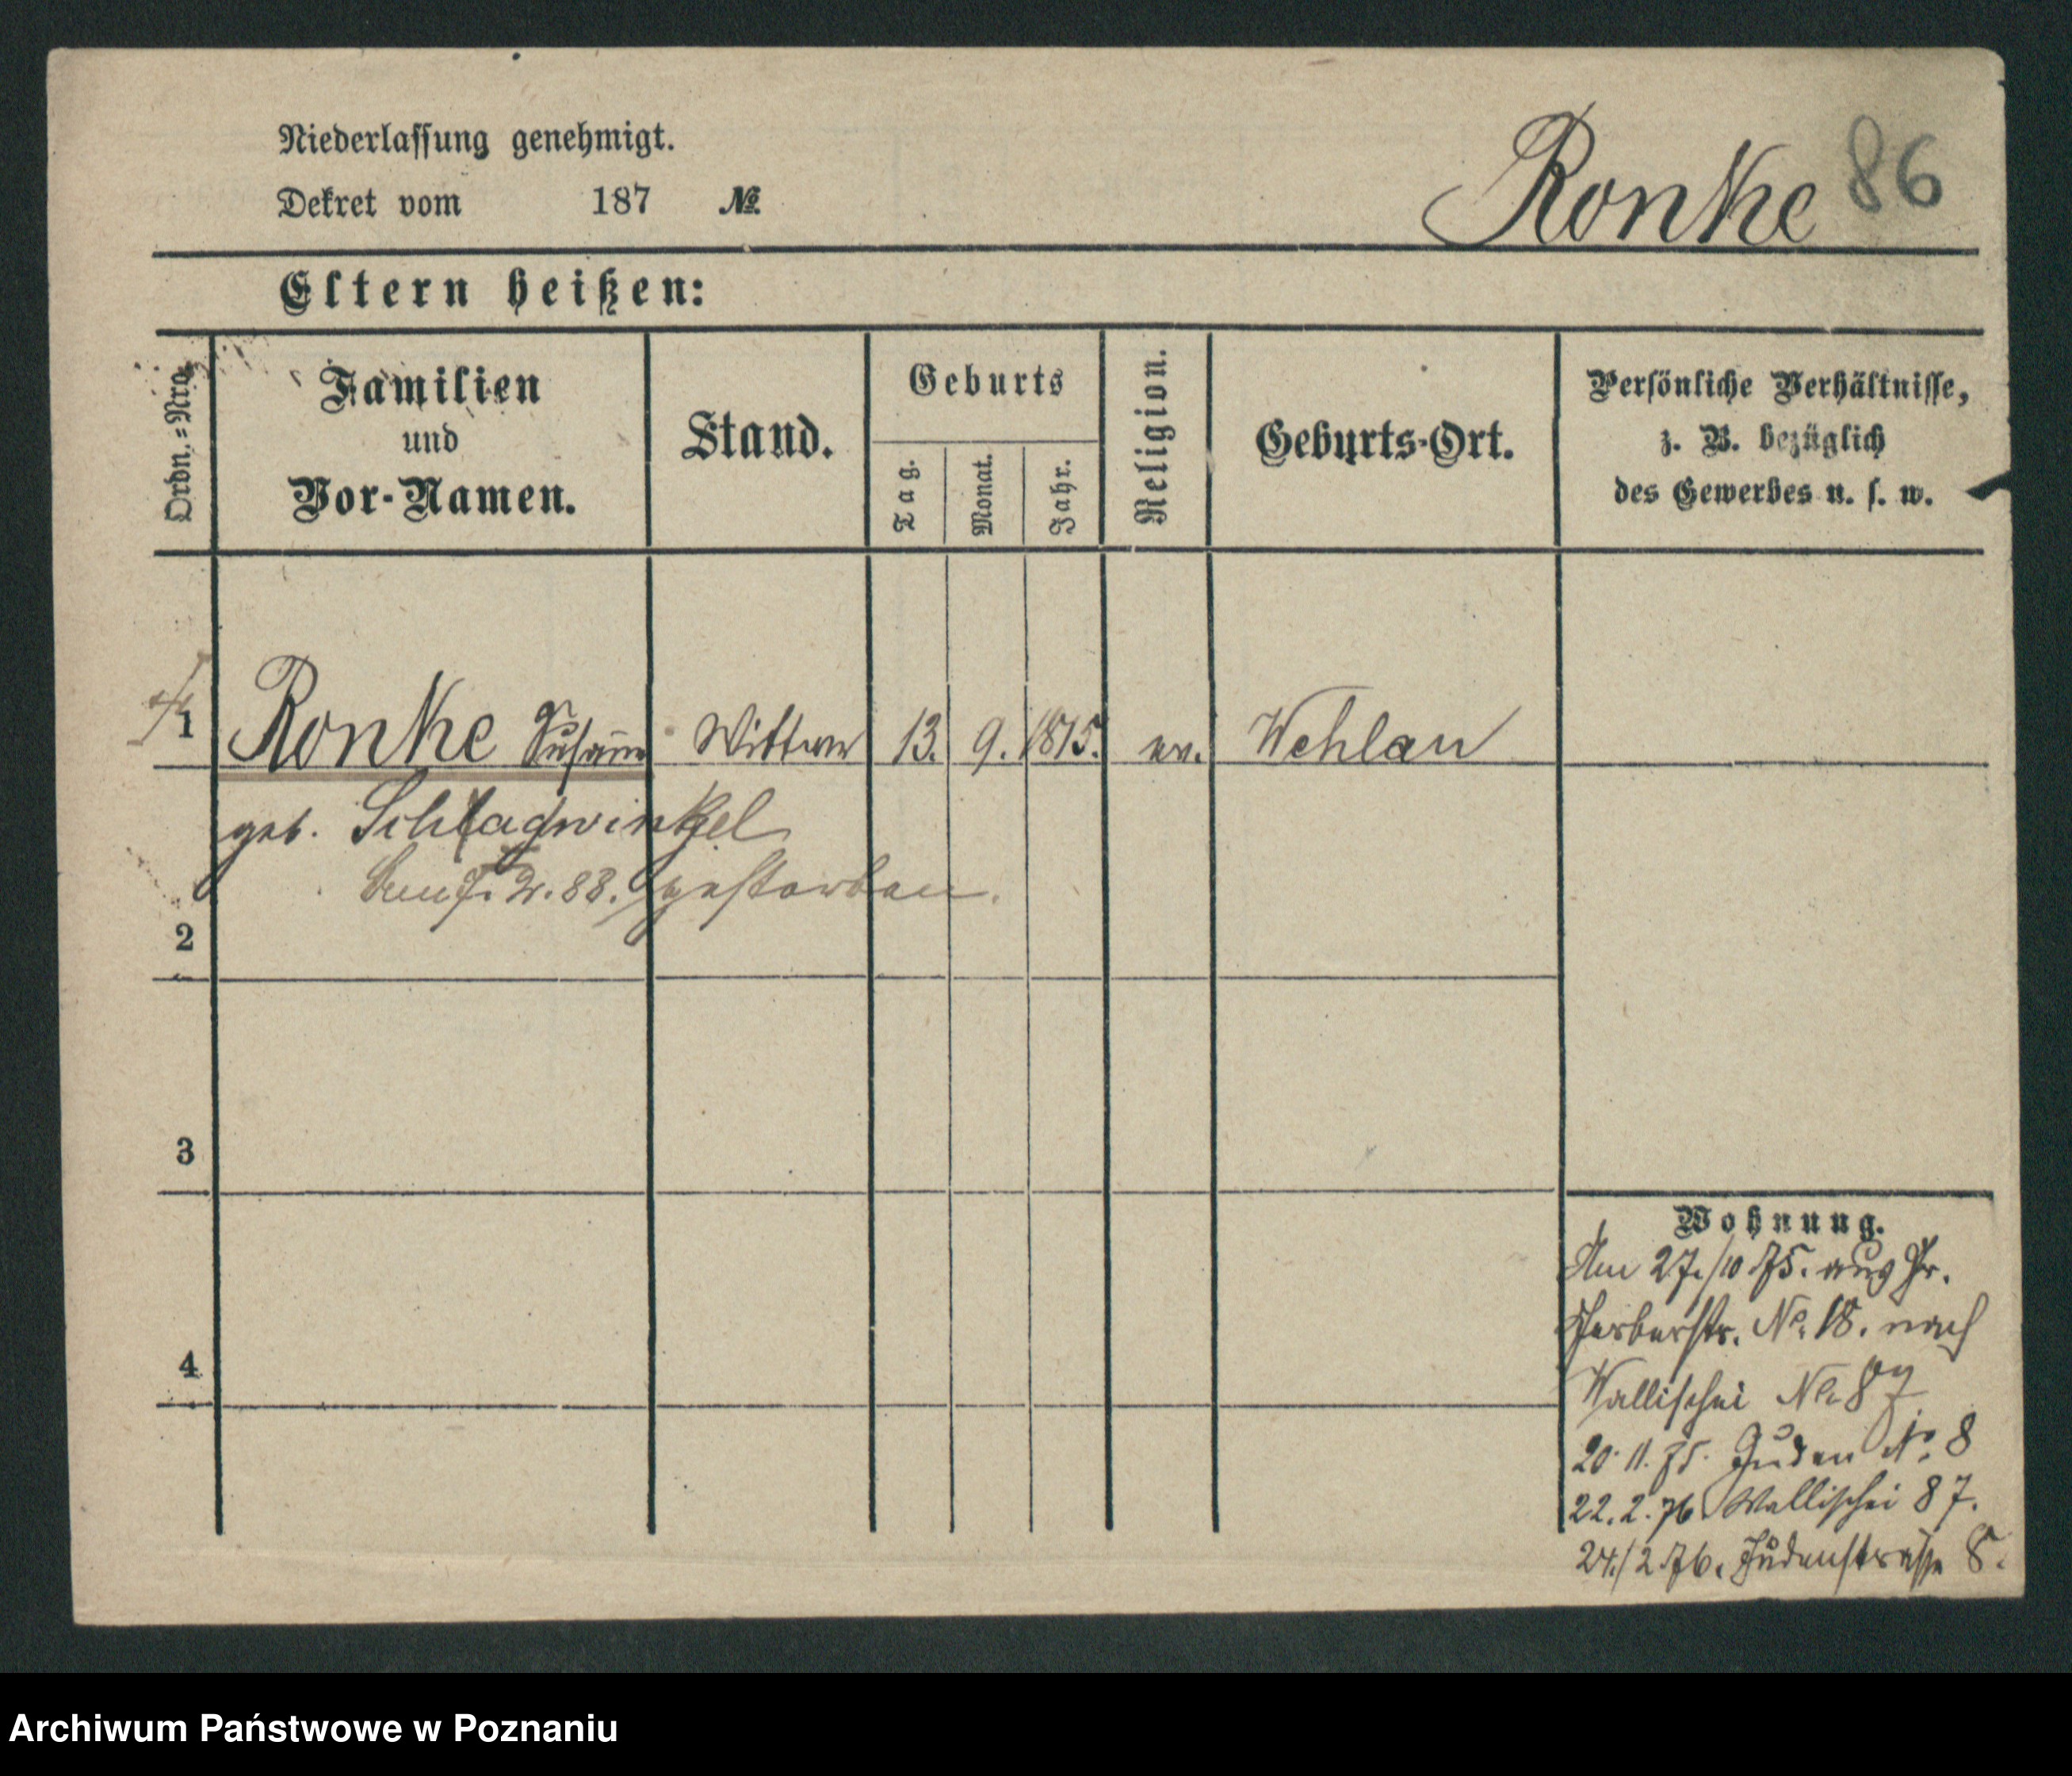 Niederlassung genehmigt.
Dekret vom 187 №
Ronke 86
Eltern heißen:
Ordn.=Nro.
Familien
und
Vor-Namen.
Stand.
Geburts
Tag.
Monat.
Jahr.
Religion.
Geburts-Ort.
Persönliche Verhältnisse,
z. B. bezüglich
des Gewerbes u. s. w.
1 Ronke Susanna Wittwe 13. 9. 1815. ev. Wehlau
geb. Schlagwinkel
2. 83. gestorben.
2
3
4
Wohnung.
Am 27./10 75. aus Gr.
Gerberstr. No. 18. nach
Wallischei No 87
20.11.75. Juden No. 8
22.2.76 Wallischei 87.
24./2.76. Judenstrasse 8.
Archiwum Państwowe w Poznaniu